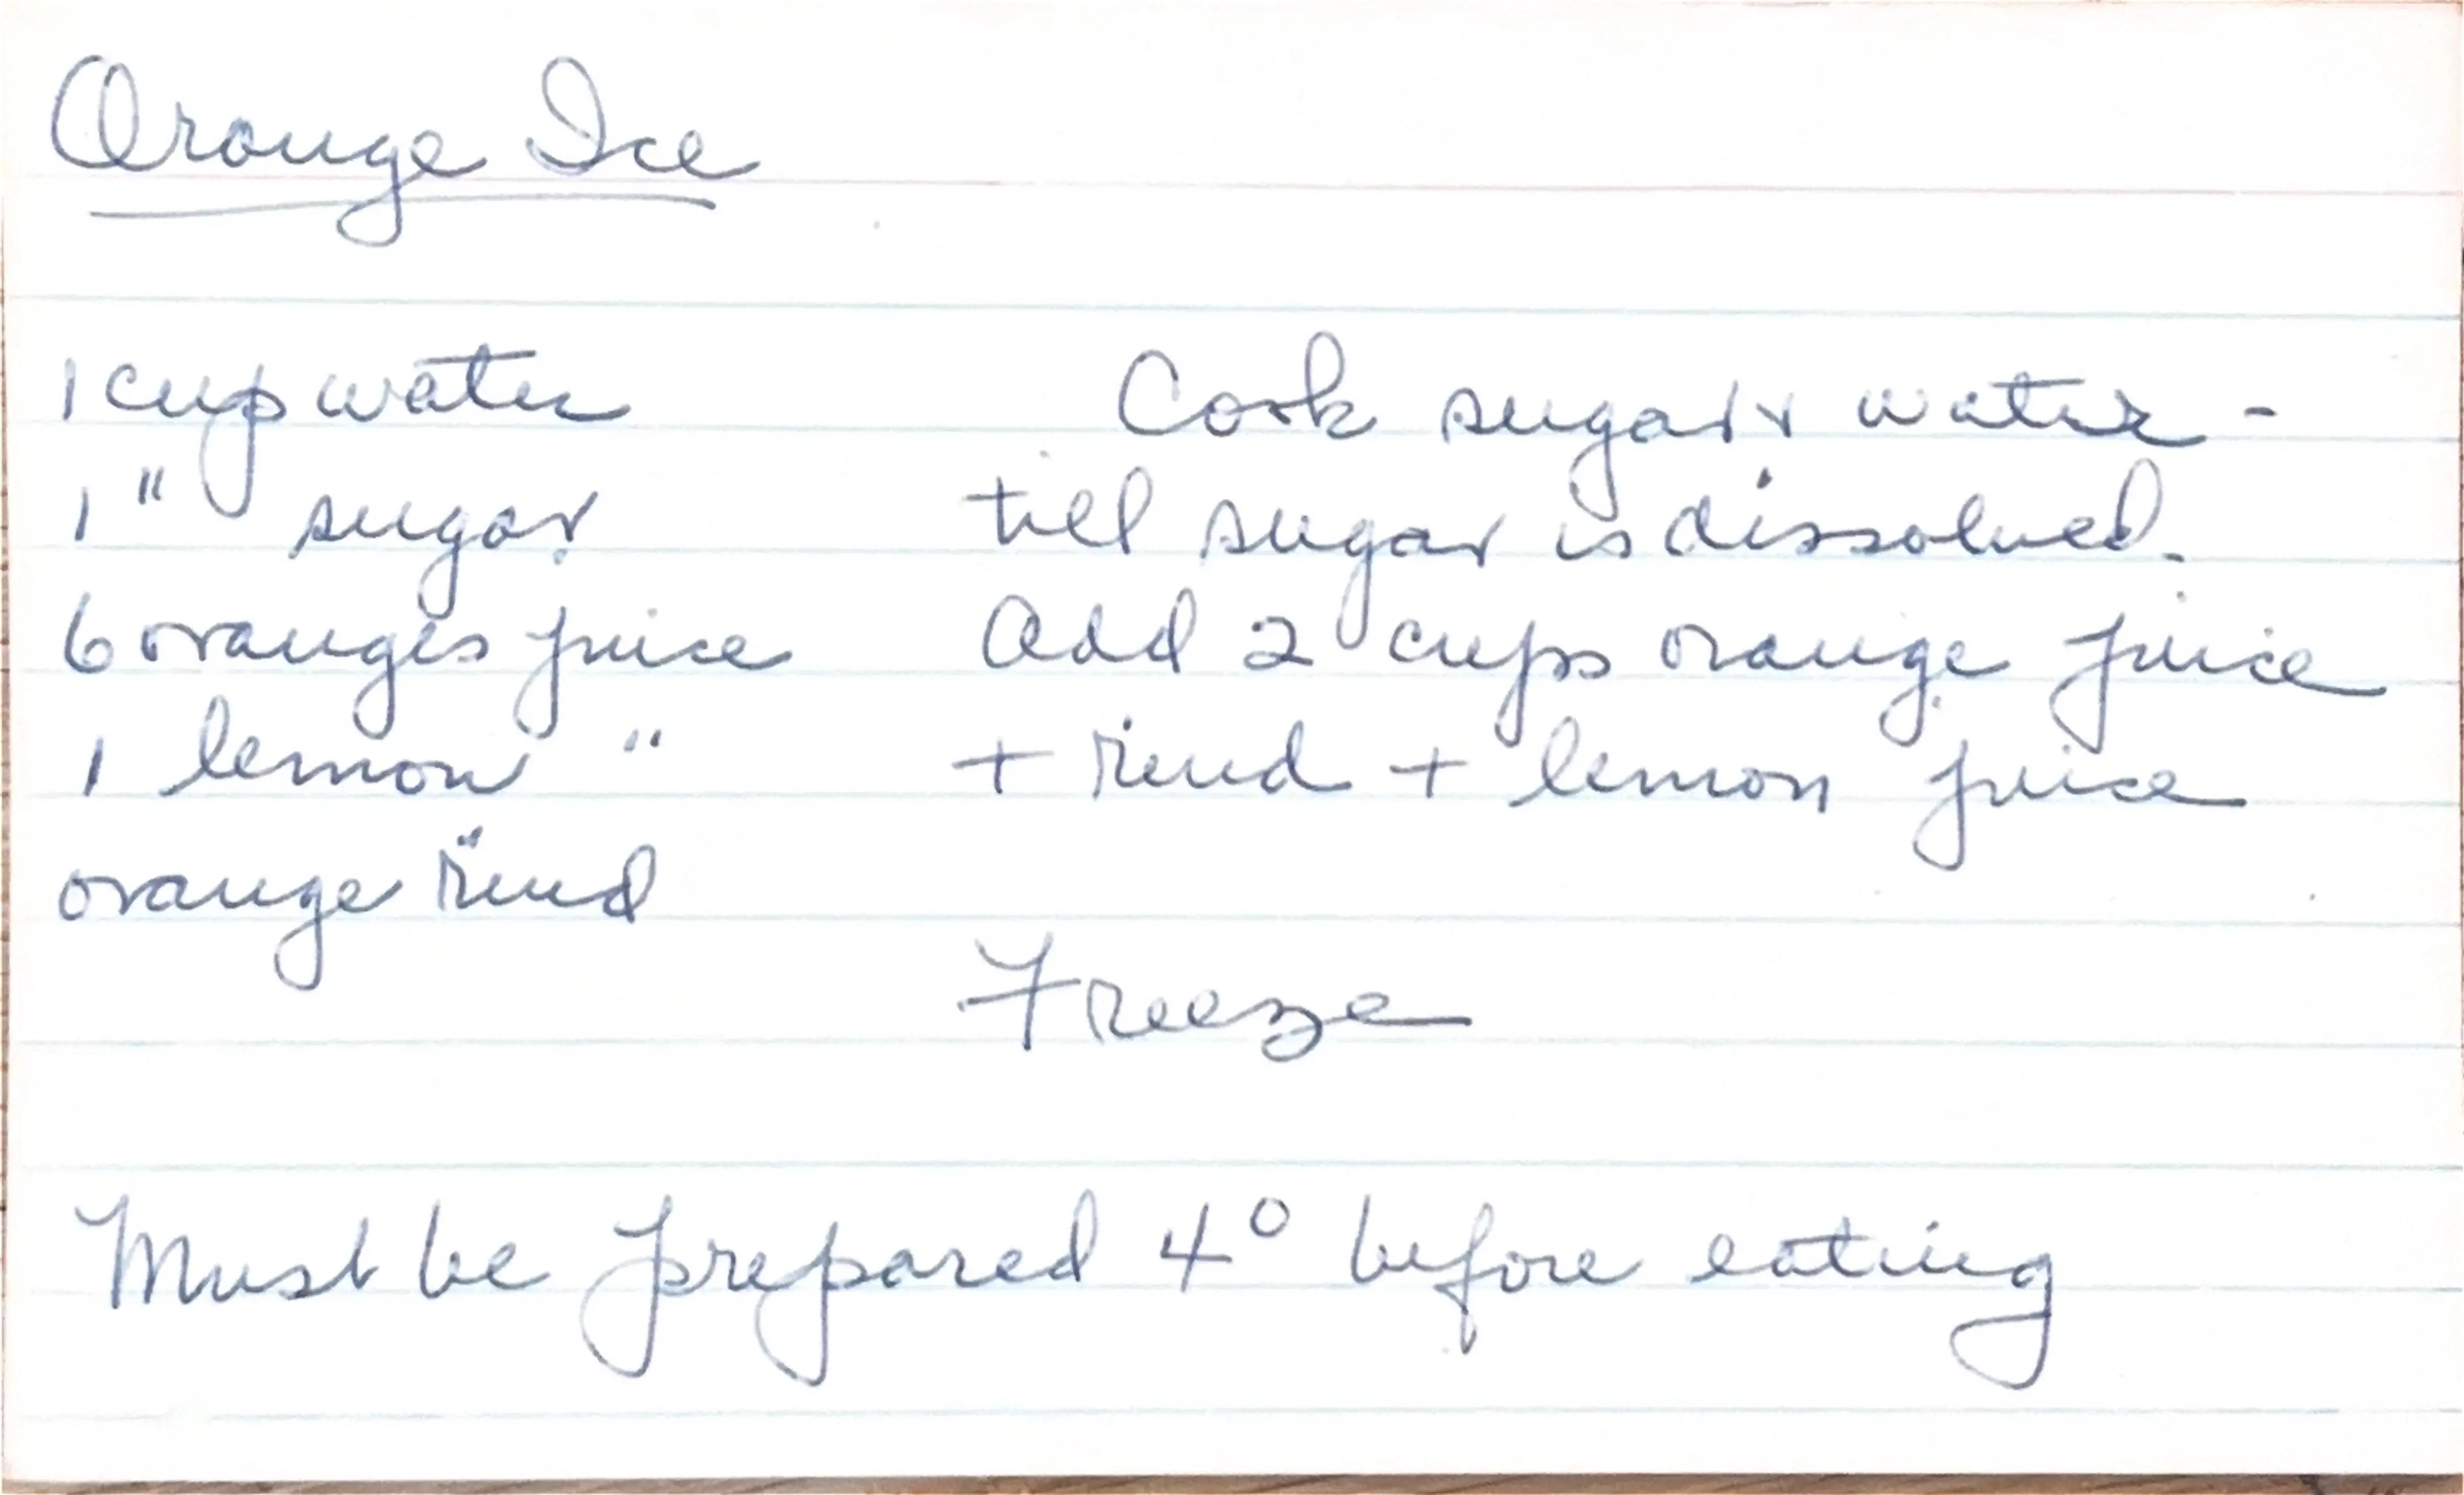 Orange Ice
1 cup water
1 " sugar
6 oranges juice
1 lemon "
orange rind
Cook sugar + water -
till sugar is dissolved.
Add 2 cups orange juice
+ rind + lemon juice
Freeze
Must be prepared 4° before eating